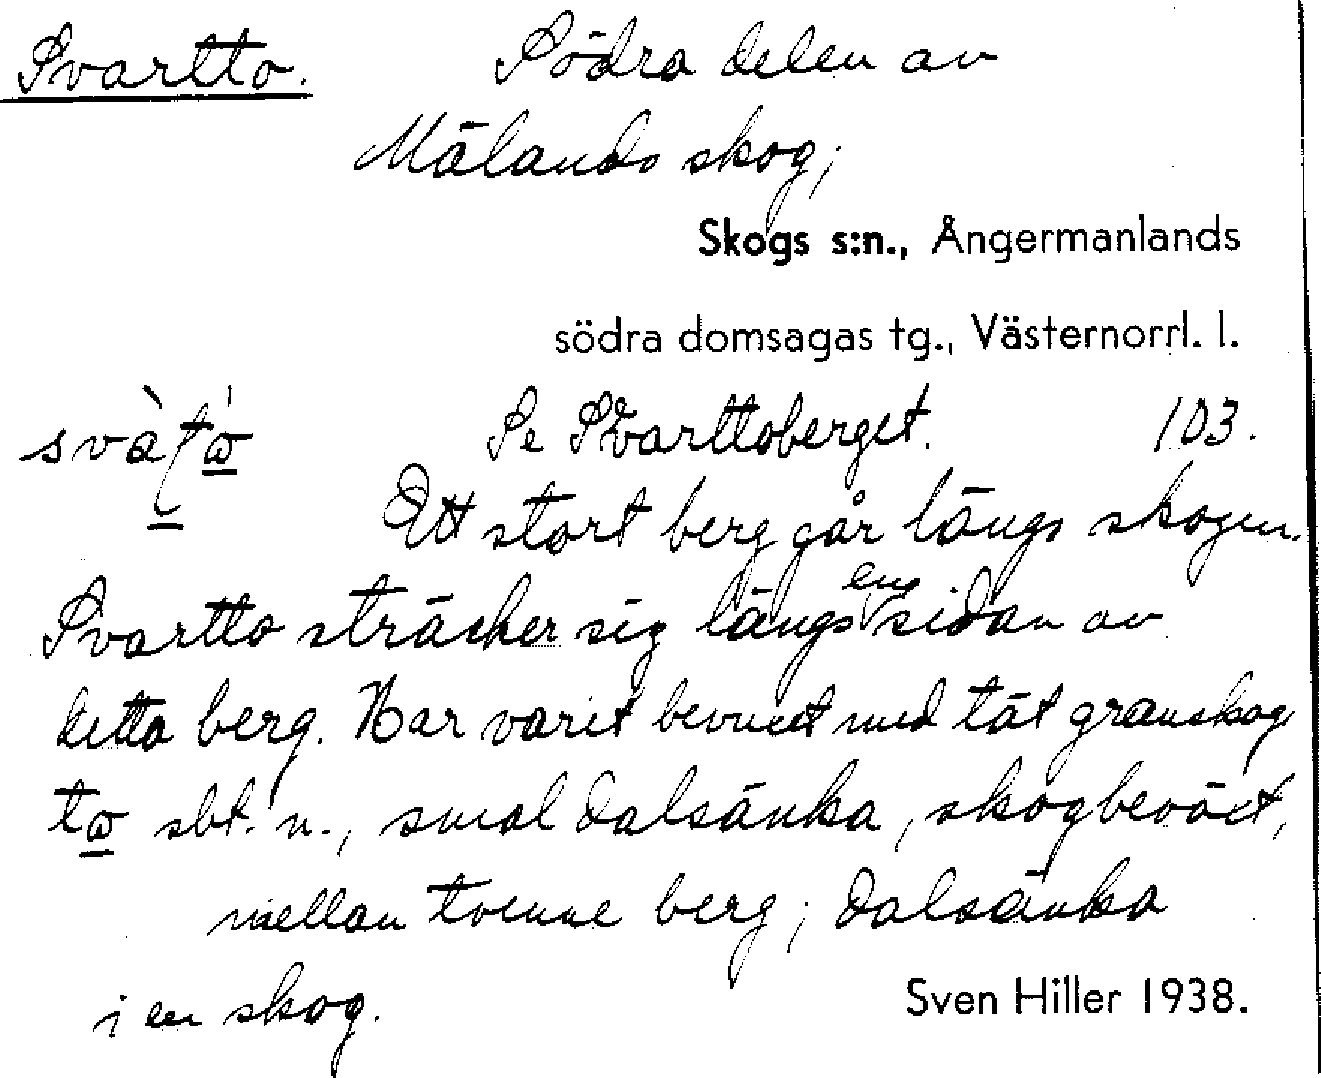 Svartto. Södra delen av
Mälands skog;
Skogs s:n., Ångermanlands
södra domsagas tg., Västernorrl. l.
svàʈώ̲ Se Svarttoberget. 103.
Ett stort berg går längs skogen.
Svartto sträcker sig längs ena sidan av
detta berg. Har varit bevuxet med tät granskog
tω̲ sbt. n., smal dalsänka, skogbeväxt,
mellan tvenne berg; dalsänka
i en skog.
Sven Hiller 1938.